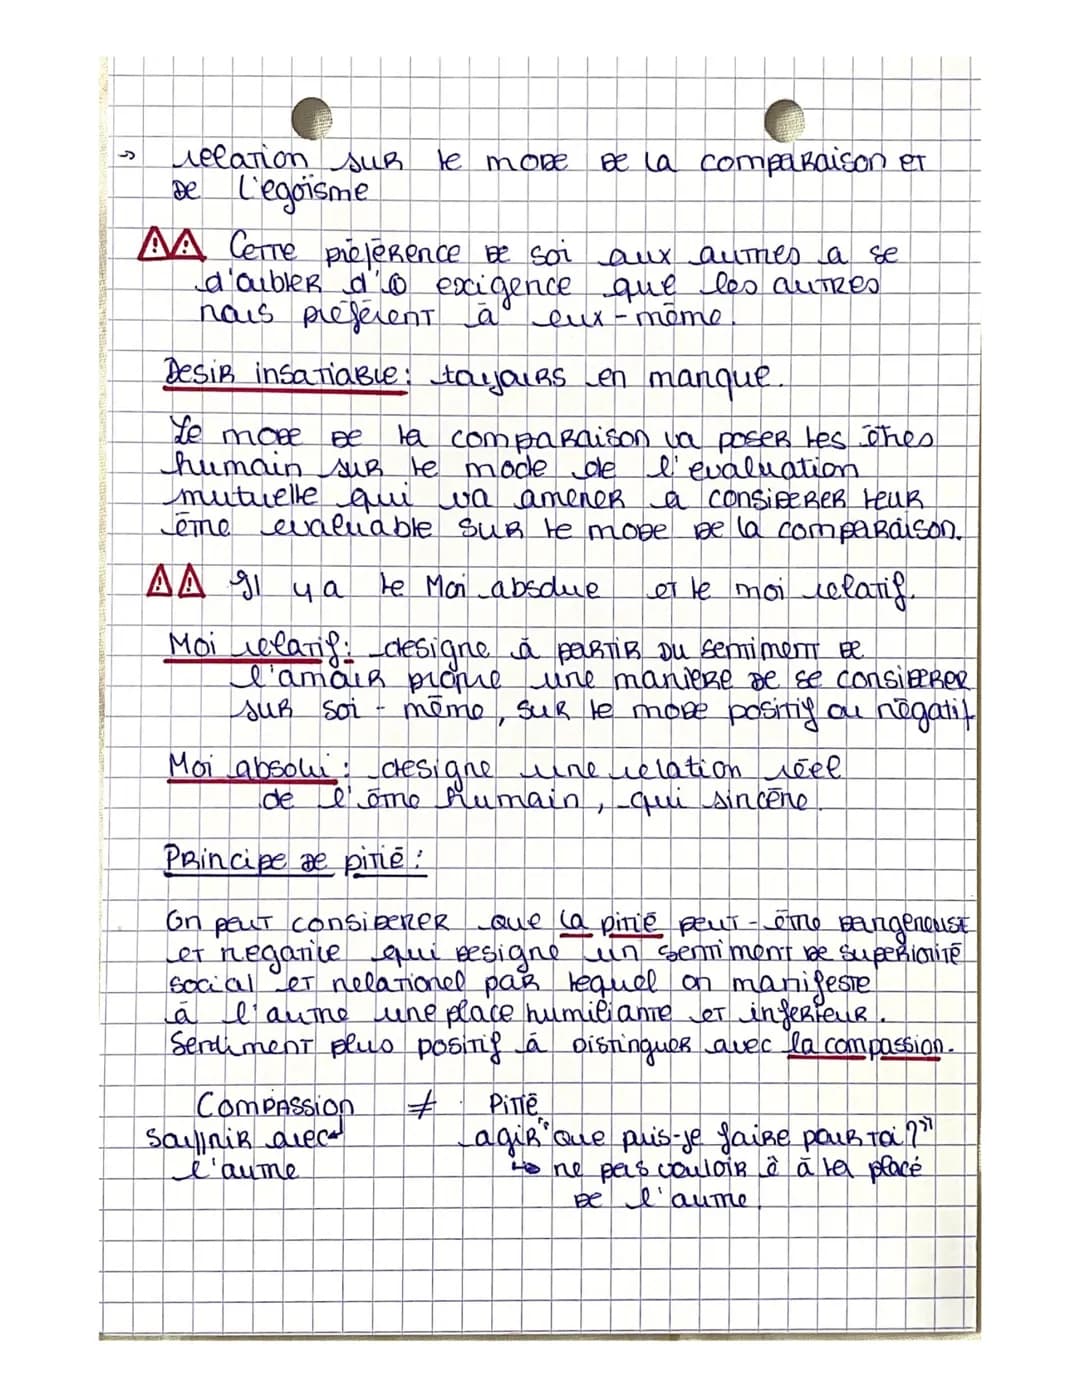 → relation sur le mode de la comparaison et
de l'egoïsme
Cette préférence de soi aux autres a se
d'oubler d'① exigence que les autres
nous préférent à eux-même.
Desir insatiable : toujours en manque.
Le mode de la comparaison va poser les êtres
humain sur le mode de l'evaluation
mutuelle qui va amener a considerer leur
être evaluable sur le mode de la comparaison.
Il y a le Moi absolue et le moi relatif.
Moi relatif : designe à partir du sentiment de
l'amour propre une maniere de se considerer
sur soi - même, sur le mode positif ou négatif
Moi absolu : designe une relation réel
de l'être humain, qui sincère.
Principe de pitié :
On peut considerer que la pitié peut-être dangereuse
et negative qui designe un sentiment de superiorité
social et relationel par lequel on manifeste
à l'autre une place humiliante et inferieur.
Sentiment plus positif à distinguer avec la compassion.
Compassion ≠ Pitié
souffrir avec
l'autre
agir "que puis-je faire pour toi ?"
↳ ne pas vouloir ê à la placé
de l'autre.